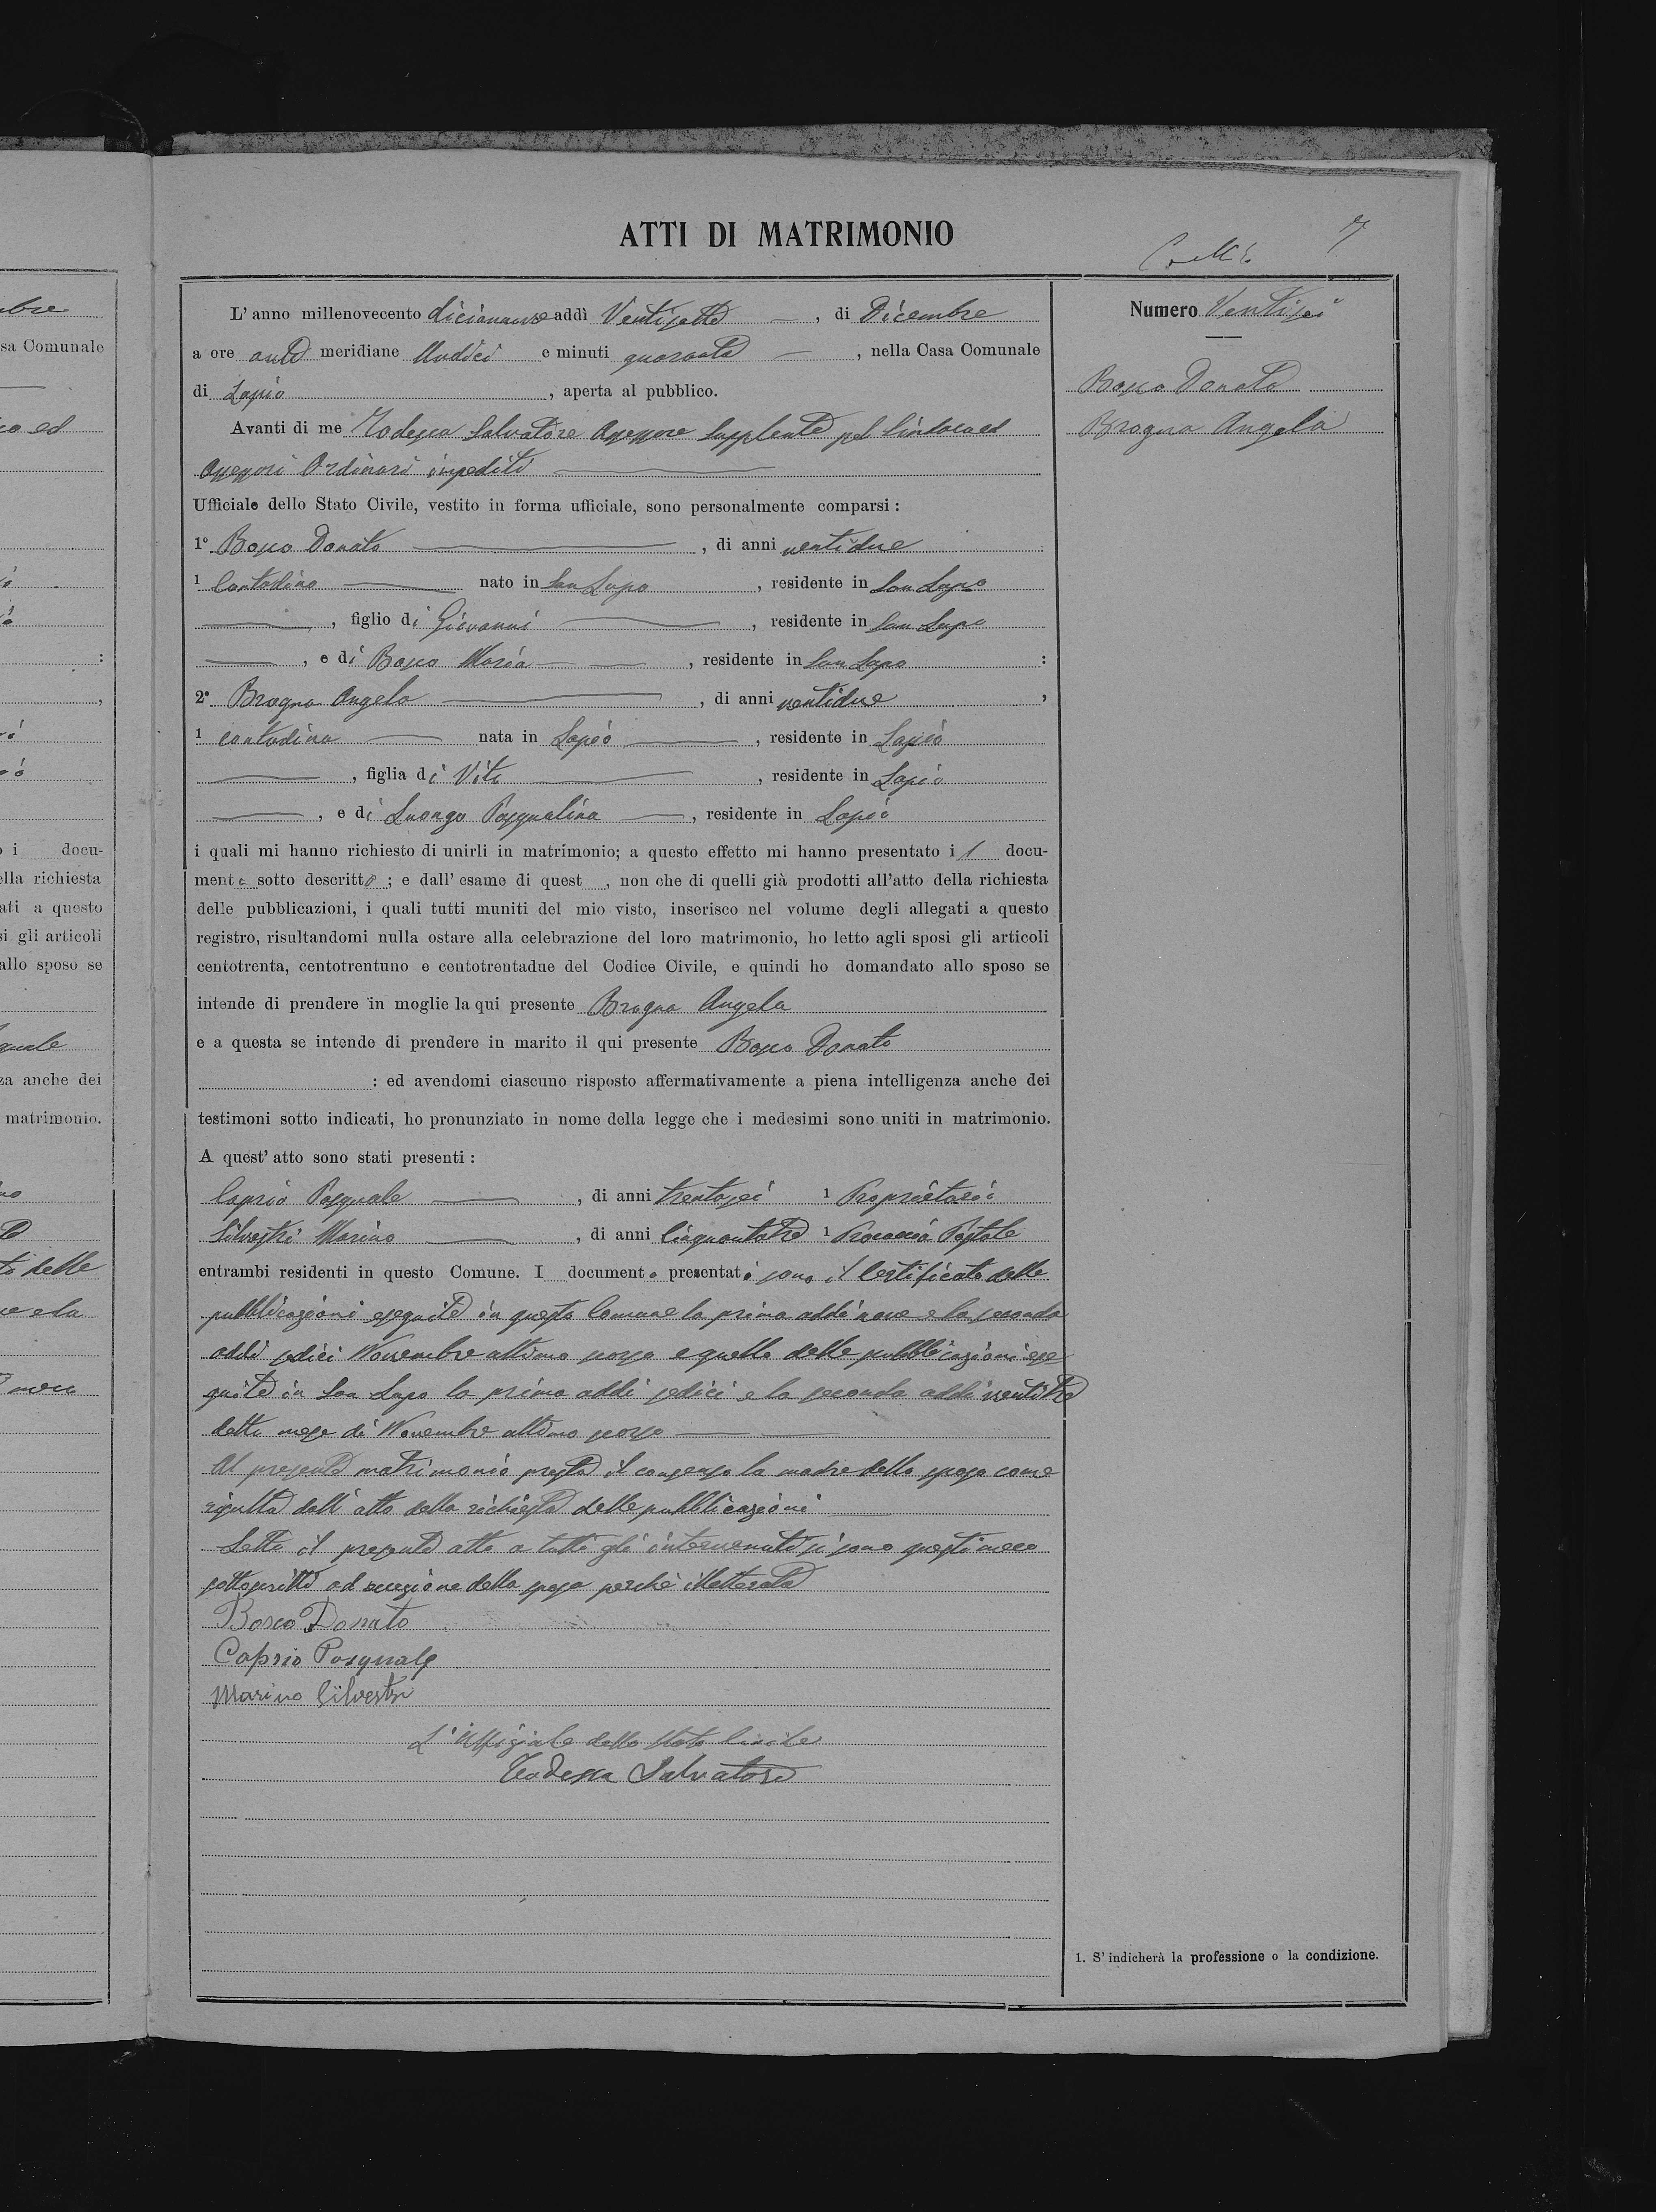 ATTI DI MATRIMONIO
7
L'anno millenovecento diciannove addì Ventisette, di Dicembre
a ore anti meridiane Undici e minuti quaranta, nella Casa Comunale
di Lapio, aperta al pubblico.
Avanti di me Todesca Salvatore Assessore Supplente pel Sindaco ed
Assessori Ordinari impediti
Ufficiale dello Stato Civile, vestito in forma ufficiale, sono personalmente comparsi:
1° Bosco Donato, di anni ventidue
1 Contadino nato in San Lupo, residente in San Lupo
, figlio di Giovanni, residente in San Lupo
, e di Bosco Maria, residente in San Lupo:
2° Brogna Angela, di anni ventidue,
1 contadina nata in Lapio, residente in Lapio
, figlia di Vito, residente in Lapio
, e di Luongo Pasqualina, residente in Lapio
i quali mi hanno richiesto di unirli in matrimonio; a questo effetto mi hanno presentato i docu-
mento sotto descritto; e dall'esame di quest, non che di quelli già prodotti all'atto della richiesta
delle pubblicazioni, i quali tutti muniti del mio visto, inserisco nel volume degli allegati a questo
registro, risultandomi nulla ostare alla celebrazione del loro matrimonio, ho letto agli sposi gli articoli
centotrenta, centotrentuno e centotrentadue del Codice Civile, e quindi ho domandato allo sposo se
intende di prendere in moglie la qui presente Brogna Angela
e a questa se intende di prendere in marito il qui presente Bosco Donato
: ed avendomi ciascuno risposto affermativamente a piena intelligenza anche dei
testimoni sotto indicati, ho pronunziato in nome della legge che i medesimi sono uniti in matrimonio.
A quest'atto sono stati presenti:
Caprio Pasquale, di anni trentasei 1 Proprietario
Silvestri Marino, di anni Cinquantatre 1 Procaccia Postale
entrambi residenti in questo Comune. I documento presentati sono il Certificato delle
pubblicazioni eseguite in questo Comune la prima addì nove e la seconda
addì sedici Novembre ultimo scorso e quello delle pubblicazioni ese
guite in San Lupo la prima addì sedici e la seconda addì ventitre
detto mese di Novembre ultimo scorso
Al presente matrimonio presta il consenso la madre dello sposo come
risulta dall'atto della richiesta delle pubblicazioni
Letto il presente atto a tutti gli intervenuti si sono questi meco
sottoscritti ad eccezione della sposa perchè illetterata
Bosco Donato
Caprio Pasquale
Marino Silvestri
L'Uffiziale dello Stato Civile
Todesca Salvatore
Numero Ventisei
Bosco Donato
Brogna Angela
1. S'indicherà la professione o la condizione.
bre
sa Comunale
co ed
:
i docu-
ella richiesta
ati a questo
si gli articoli
allo sposo se
quale
za anche dei
matrimonio.
delle
e la
meco